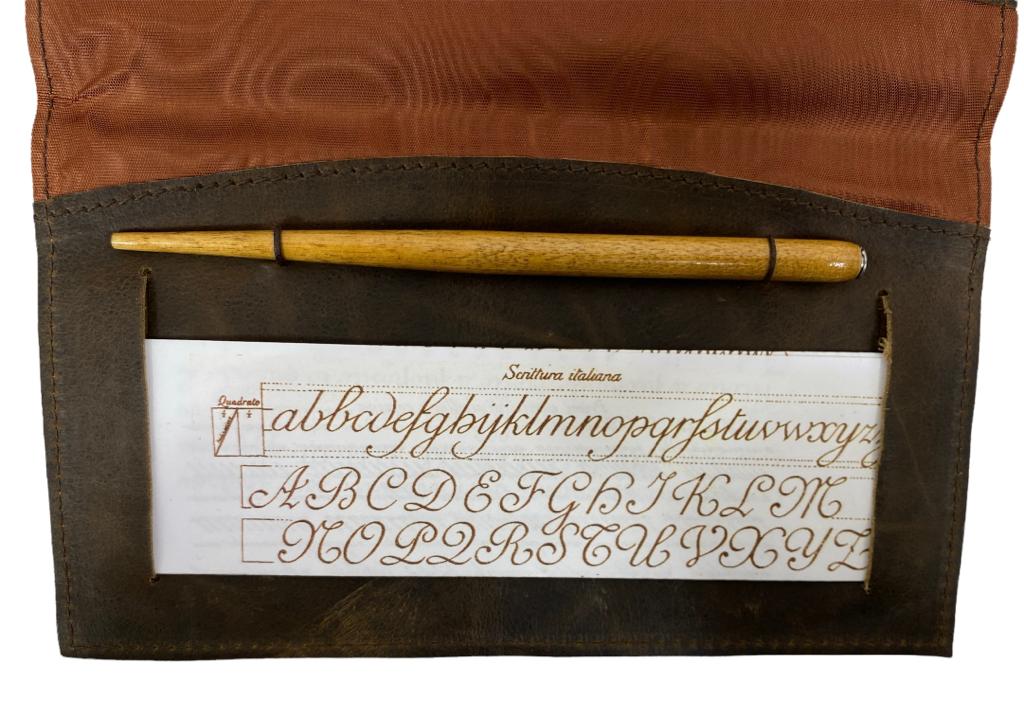 Scrittura italiana
Quadrato
abbcdefghijklmnopqrſstuvwxyz
ABCDEFGHIKLM
NOPQRSTUVXYZ